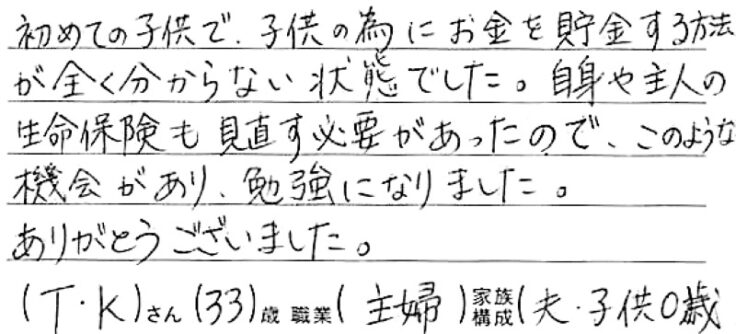 初めての子供で、子供の為にお金を貯金する方法
が全く分からない状態でした。自身や主人の
生命保険も見直す必要があったので、このような
機会があり、勉強になりました。
ありがとうございました。
(T・K)さん(33)歳 職業(主婦)家族構成(夫・子供0歳